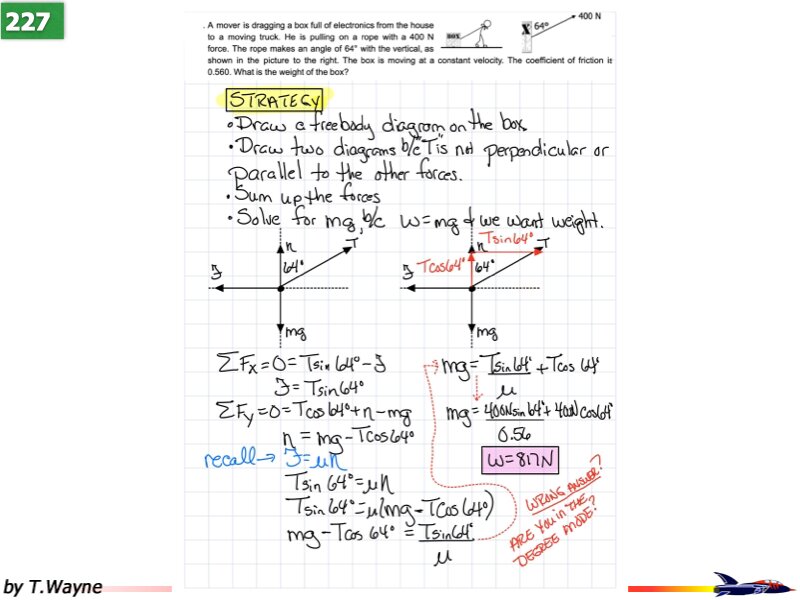 227
. A mover is dragging a box full of electronics from the house
to a moving truck. He is pulling on a rope with a 400 N
force. The rope makes an angle of 64° with the vertical, as
shown in the picture to the right. The box is moving at a constant velocity. The coefficient of friction is
0.560. What is the weight of the box?
BOX
X 64° 400 N
STRATEGY
• Draw a freebody diagram on the box
• Draw two diagrams b/c "T" is not perpendicular or
parallel to the other forces.
• Sum up the forces
• Solve for mg, b/c W=mg & we want weight.
n T
64°
ℱ
mg
Tsin64°
n T
Tcos64° 64°
ℱ
mg
ΣFx=0=Tsin64°-ℱ
ℱ=Tsin64°
ΣFy=0=Tcos64°+n-mg
n=mg-Tcos64°
recall→ ℱ=μn
Tsin64°=μn
Tsin64°=μ(mg-Tcos64°)
mg-Tcos64°=Tsin64°
μ
mg=Tsin64°+Tcos64°
μ
mg=400Nsin64°+400Ncos64°
0.56
W=817N
WRONG ANSWER?
ARE YOU IN THE
DEGREE MODE?
by T.Wayne